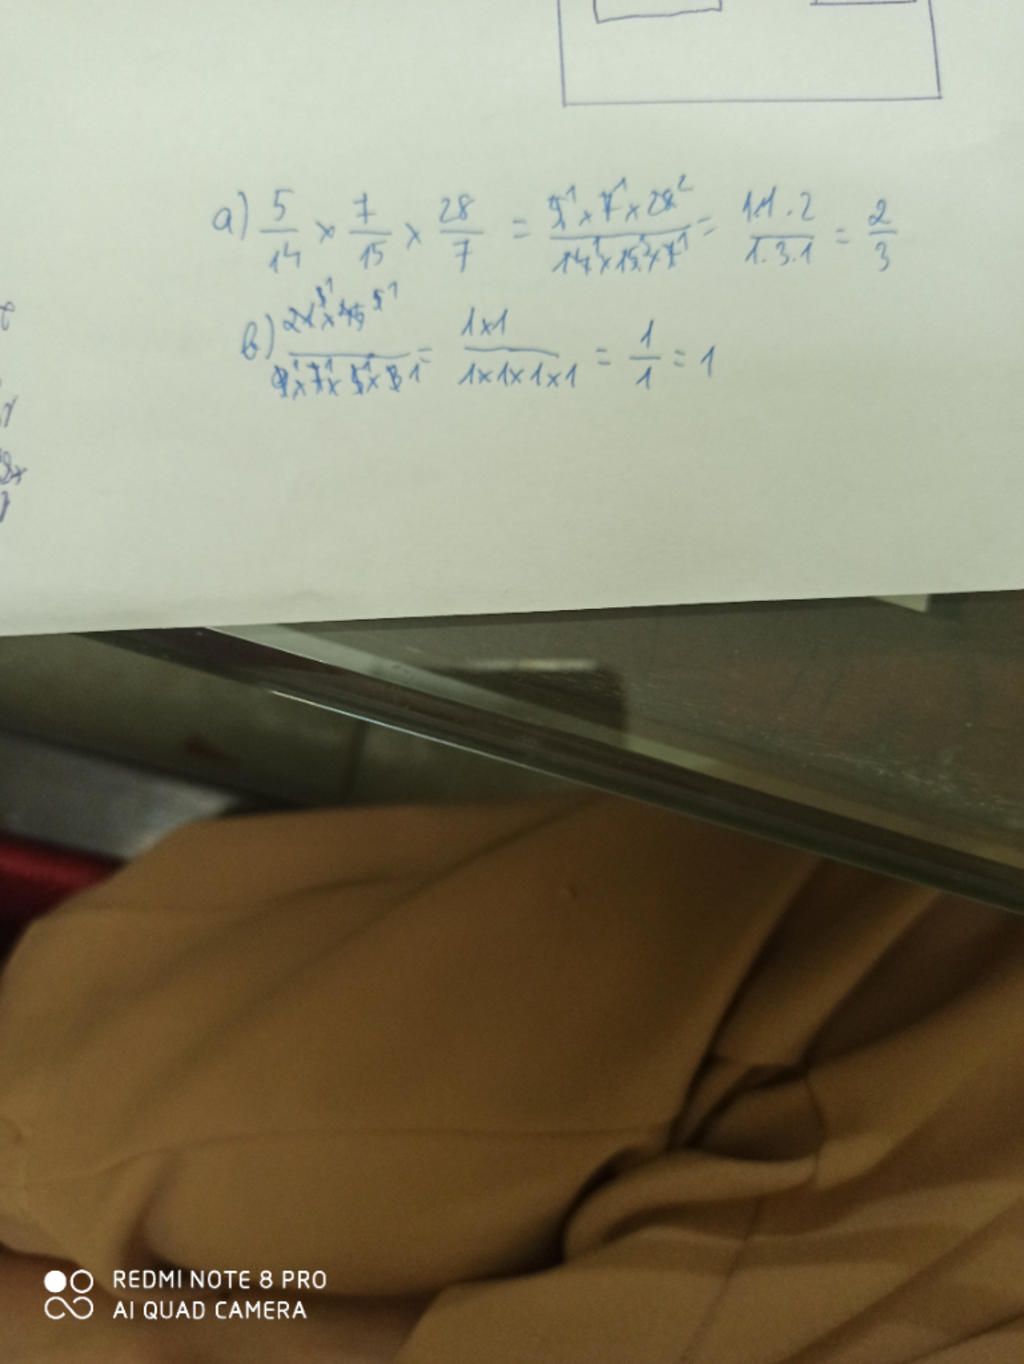 a) 5/14 × 7/15 × 28/7 = 5¹ × 7¹ × 28² / 14¹ × 15³ × 7¹ = 1.1.2 / 1.3.1 = 2/3
b) 21 × 45 / 9 × 7 × 5 × 3 = 1×1 / 1×1×1×1 = 1/1 = 1
REDMI NOTE 8 PRO
AI QUAD CAMERA